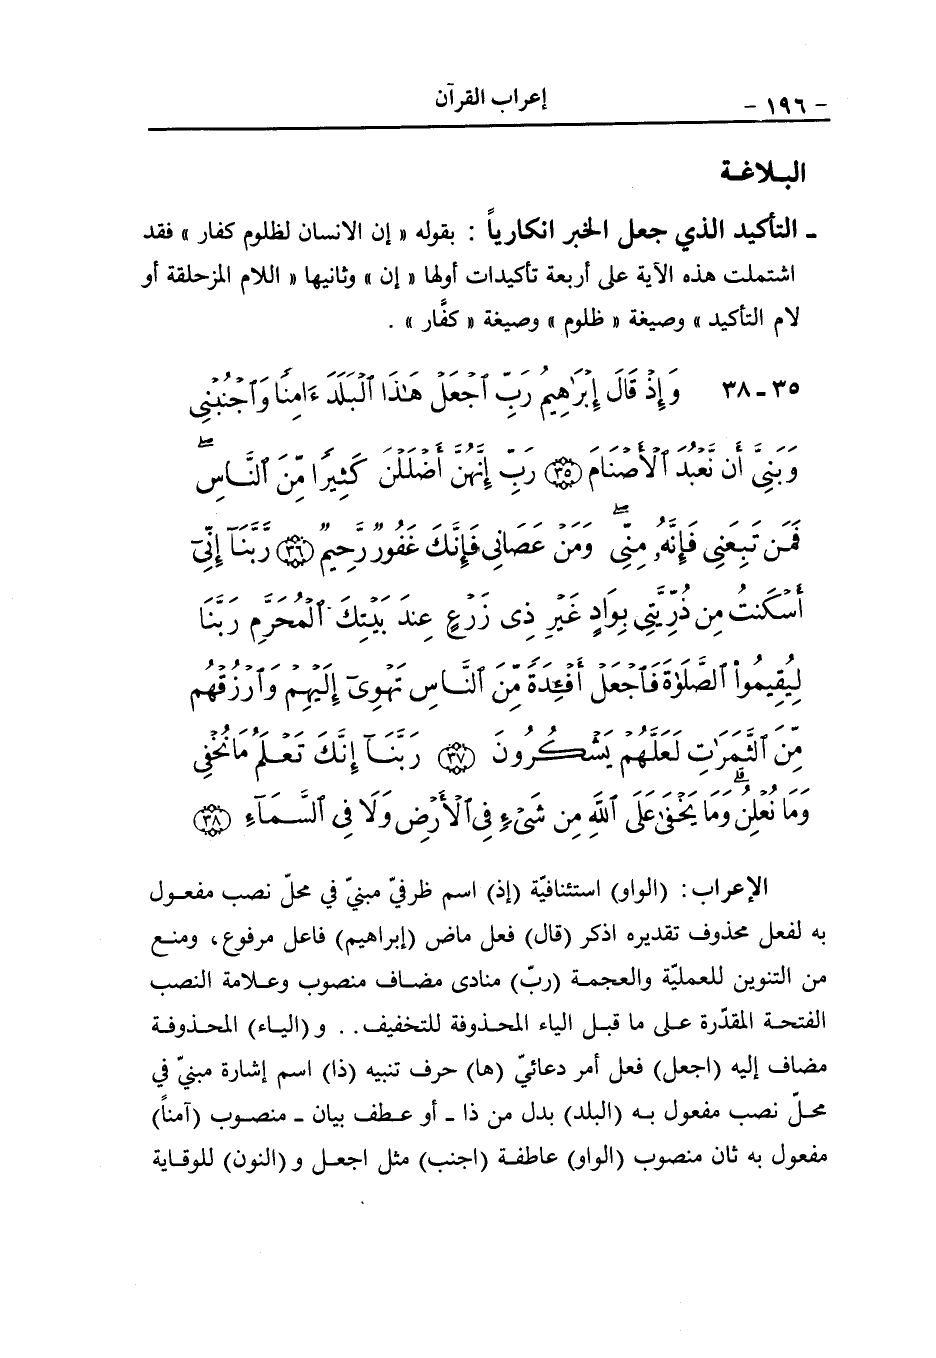 إعراب القرآن
- ١٩٦ -
البـلاغـة
ـ التأكيد الذي جعل الخبر انكارياً : بقوله « إن الانسان لظلوم كفار » فقد
اشتملت هذه الآية على أربعة تأكيدات أولها « إن » وثانيها « اللام المزحلقة أو
لام التأكيد » وصيغة « ظلوم » وصيغة « كفَّار » .
٣٥ ـ ٣٨ وَإِذْ قَالَ إِبْرَٰهِيمُ رَبِّ ٱجْعَلْ هَـٰذَا ٱلْبَلَدَ ءَامِنًا وَٱجْنُبْنِى
وَبَنِىَّ أَن نَّعْبُدَ ٱلْأَصْنَامَ ﴿٣٥﴾ رَبِّ إِنَّهُنَّ أَضْلَلْنَ كَثِيرًا مِّنَ ٱلنَّاسِ ۖ
فَمَن تَبِعَنِى فَإِنَّهُۥ مِنِّى ۖ وَمَنْ عَصَانِى فَإِنَّكَ غَفُورٌ رَّحِيمٌ ﴿٣٦﴾ رَّبَّنَآ إِنِّىٓ
أَسْكَنتُ مِن ذُرِّيَّتِى بِوَادٍ غَيْرِ ذِى زَرْعٍ عِندَ بَيْتِكَ ٱلْمُحَرَّمِ رَبَّنَا
لِيُقِيمُوا۟ ٱلصَّلَوٰةَ فَٱجْعَلْ أَفْـِٔدَةً مِّنَ ٱلنَّاسِ تَهْوِىٓ إِلَيْهِمْ وَٱرْزُقْهُم
مِّنَ ٱلثَّمَرَٰتِ لَعَلَّهُمْ يَشْكُرُونَ ﴿٣٧﴾ رَبَّنَآ إِنَّكَ تَعْلَمُ مَا نُخْفِى
وَمَا نُعْلِنُ ۗ وَمَا يَخْفَىٰ عَلَى ٱللَّهِ مِن شَىْءٍ فِى ٱلْأَرْضِ وَلَا فِى ٱلسَّمَآءِ ﴿٣٨﴾
الإعراب: (الواو) استئنافيّة (إذ) اسم ظرفيّ مبنيّ في محلّ نصب مفعول
به لفعل محذوف تقديره اذكر (قال) فعل ماض (إبراهيم) فاعل مرفوع، ومنـع
من التنوين للعمليّة والعجمـة (ربّ) منادى مضـاف منصوب وعـلامة النصب
الفتحـة المقدّرة عـلى ما قبـل الياء المحـذوفة للتخفيف. . و (اليـاء) المحـذوفـة
مضاف إليه (اجعل) فعل أمر دعائيّ (ها) حرف تنبيه (ذا) اسم إشارة مبنيّ في
محـلّ نصب مفعول بـه (البلد) بدل من ذا ـ أو عـطف بيان ـ منصـوب (آمناً)
مفعول به ثان منصوب (الواو) عاطفـة (اجنب) مثل اجعـل و (النون) للوقـاية